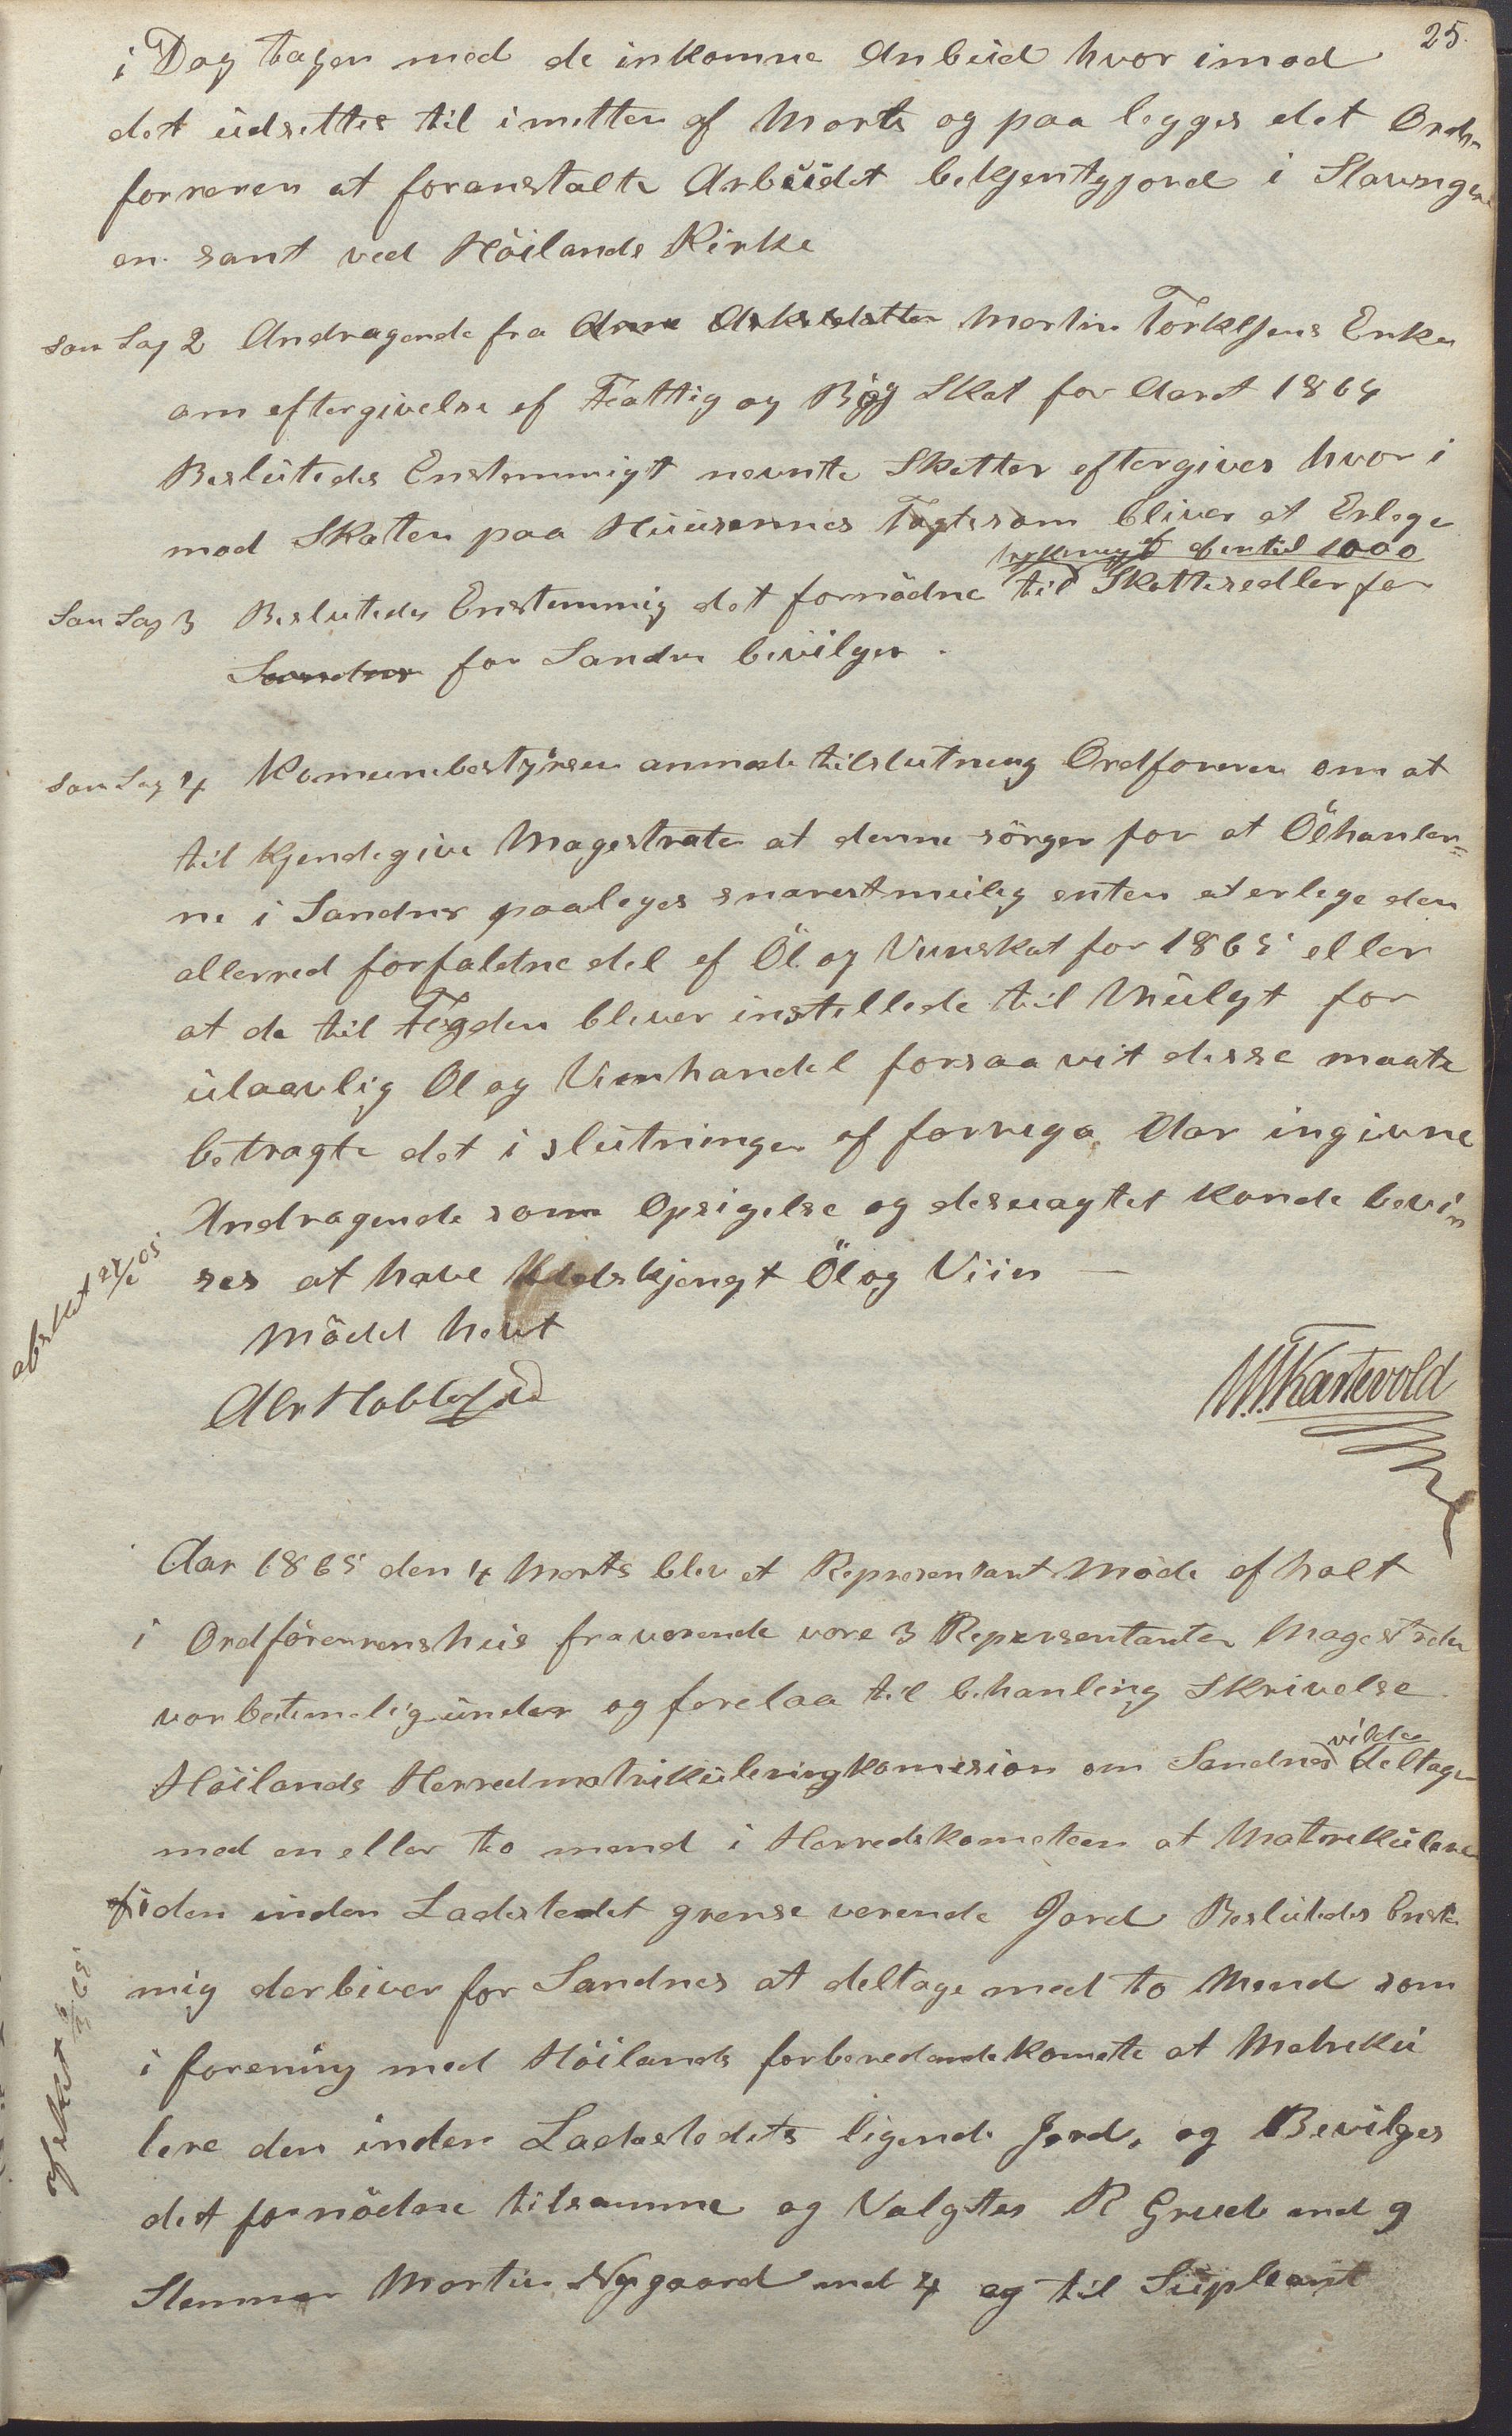 25.
i Dag tagen med de inkomne Anbud hvor imod
det udsettes til imitten af Marts og paa legges det Ord-
foreren at foranstalte Arbudet bekjentgjord i Stavnger
en samt ved Höilands Kirke
som Sag 2 Andragende fra Martin Torkelsens Enke
om eftergivelse af Fattig og Byg Skat for Aaret 1864
Beslutedes Enstemmigt nevnte Skatter eftergives hvor i
mod Skaten paa Huusernnes Tagt som bliver at Erlege
af intil 1000
som Sag 3 Beslutedes Enstemmig det fornödne til Skattesedler for
Sandnes for Sandn bevilges.
som Sag 4 Komunebestyrsen anmode tilslutning Ordforeren om at
til kjendegive Magestraten at denne sörger for at Ölhanler=
ne i Sandnes paaleges snarestmulig enten at erlege den
allerred forfaldne del af Öl og Viinskat for 1865 eller
at de til Fogden bliver instellede til Mulgt for
ulaavlig Ol og Viinhandel forsaavit disse maate
betragte det i slutningen af forrige Aar ingivne
Andragende som Opsigelse og desuagtet kande bevi=
ses at have Udskjengt Öl og Viin —
Mödet hevet
W.W. Kartevold
afskket 27/2 65
Aar 1865 den 4 Marts blev et Representant Möde af holt
i Ordförerrens hus fraverende vore 3 Representanter Magestraten
var betimelig under og forelaa til behanling Skrivelse
Höilands Herredmatrikuleringkomision om Sandnes vilde deltage
med en eller to mend i Herredskometeen at Matrekulere
iden inden Ladestedet grense verende Jord Beslutedes Enste
mig der biver for Sandnes at deltage med to Mend som
i forening med Höilands forberedende komete at Matreku
lere den inden Ladestedets ligende Jord, og Bevilges
det fornödne tilsamme og Valgtes R Grude med 9
Stemmer Martin Nygaard med 4 og til Supleant